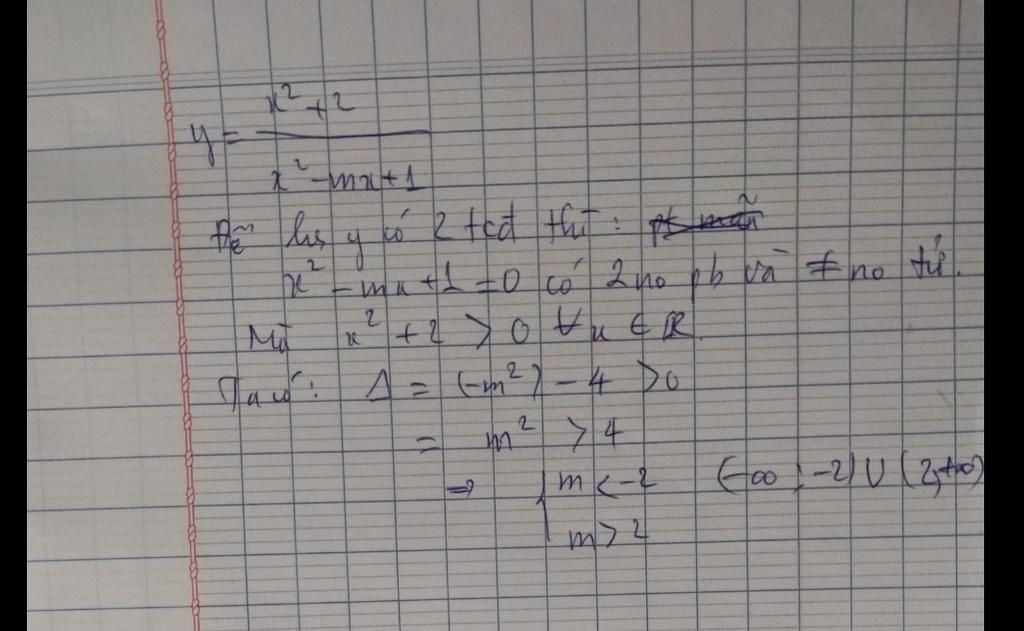 y = \frac{x^2+2}{x^2-mx+1}
Để hs y có 2 tcđ thì:
x^2 - mx + 1 = 0 có 2 no pb và ≠ no tử.
Mà x^2 + 2 > 0 ∀x ∈ ℝ
Ta có: Δ = (-m^2) - 4 > 0
= m^2 > 4
⇒ m < -2 (-∞; -2) ∪ (2; +∞)
m > 2